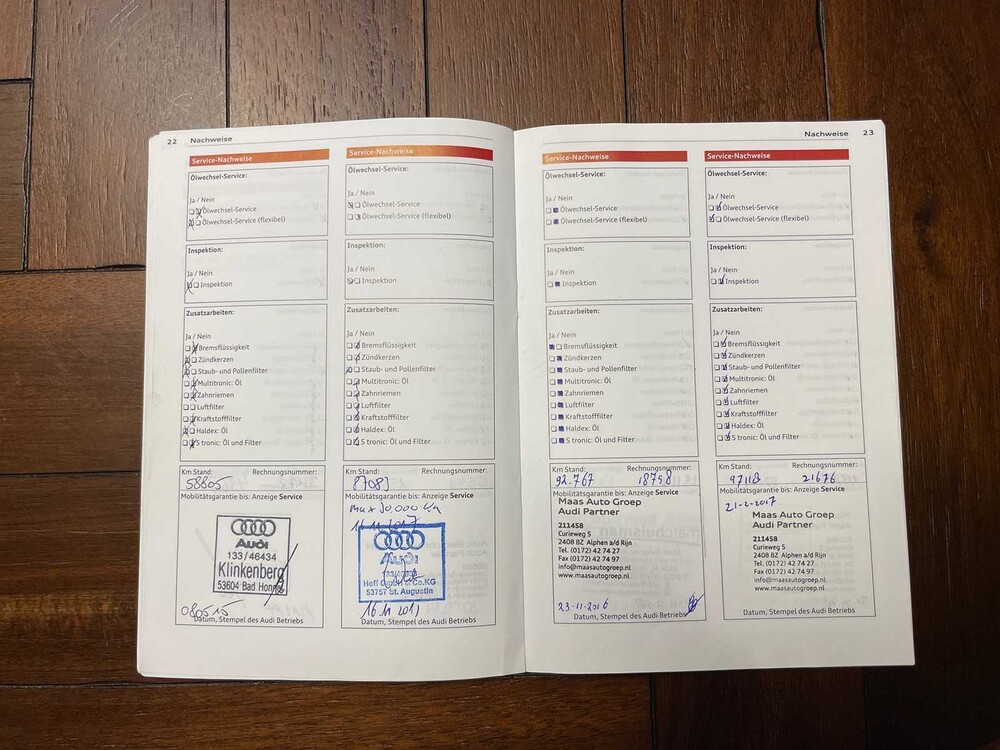 22 Nachweise
Service-Nachweise
Ölwechsel-Service:
Ja / Nein
Ölwechsel-Service
Ölwechsel-Service (flexibel)
Inspektion:
Ja / Nein
Inspektion
Zusatzarbeiten:
Ja / Nein
Bremsflüssigkeit
Zündkerzen
Staub- und Pollenfilter
Multitronic: Öl
Zahnriemen
Luftfilter
Kraftstofffilter
Haldex: Öl
S tronic: Öl und Filter
Km Stand: Rechnungsnummer:
58805
Mobilitätsgarantie bis: Anzeige Service
Audi
133/46434
Klinkenberg
53604 Bad Honnef
Datum, Stempel des Audi Betriebs
Service-Nachweise
Ölwechsel-Service:
Ja / Nein
Ölwechsel-Service
Ölwechsel-Service (flexibel)
Inspektion:
Ja / Nein
Inspektion
Zusatzarbeiten:
Ja / Nein
Bremsflüssigkeit
Zündkerzen
Staub- und Pollenfilter
Multitronic: Öl
Zahnriemen
Luftfilter
Kraftstofffilter
Haldex: Öl
S tronic: Öl und Filter
Km Stand: Rechnungsnummer:
Mobilitätsgarantie bis: Anzeige Service
max 30,000 Km
16 11 2017
Audi
Hoff GmbH & Co.KG
53757 St. Augustin
Datum, Stempel des Audi Betriebs
Nachweise 23
Service-Nachweise
Ölwechsel-Service:
Ja / Nein
Ölwechsel-Service
Ölwechsel-Service (flexibel)
Inspektion:
Ja / Nein
Inspektion
Zusatzarbeiten:
Ja / Nein
Bremsflüssigkeit
Zündkerzen
Staub- und Pollenfilter
Multitronic: Öl
Zahnriemen
Luftfilter
Kraftstofffilter
Haldex: Öl
S tronic: Öl und Filter
Km Stand: Rechnungsnummer:
92.767 18758
Mobilitätsgarantie bis: Anzeige Service
Maas Auto Groep
Audi Partner
211458
Curieweg 5
2408 BZ Alphen a/d Rijn
Tel. (0172) 42 74 27
Fax (0172) 42 74 97
info@maasautogroep.nl
www.maasautogroep.nl
23-11-2016
Datum, Stempel des Audi Betriebs
Service-Nachweise
Ölwechsel-Service:
Ja / Nein
Ölwechsel-Service
Ölwechsel-Service (flexibel)
Inspektion:
Ja / Nein
Inspektion
Zusatzarbeiten:
Ja / Nein
Bremsflüssigkeit
Zündkerzen
Staub- und Pollenfilter
Multitronic: Öl
Zahnriemen
Luftfilter
Kraftstofffilter
Haldex: Öl
S tronic: Öl und Filter
Km Stand: Rechnungsnummer:
97118 21676
Mobilitätsgarantie bis: Anzeige Service
21-2-2017
Maas Auto Groep
Audi Partner
211458
Curieweg 5
2408 BZ Alphen a/d Rijn
Tel. (0172) 42 74 27
Fax (0172) 42 74 97
info@maasautogroep.nl
www.maasautogroep.nl
Datum, Stempel des Audi Betriebs